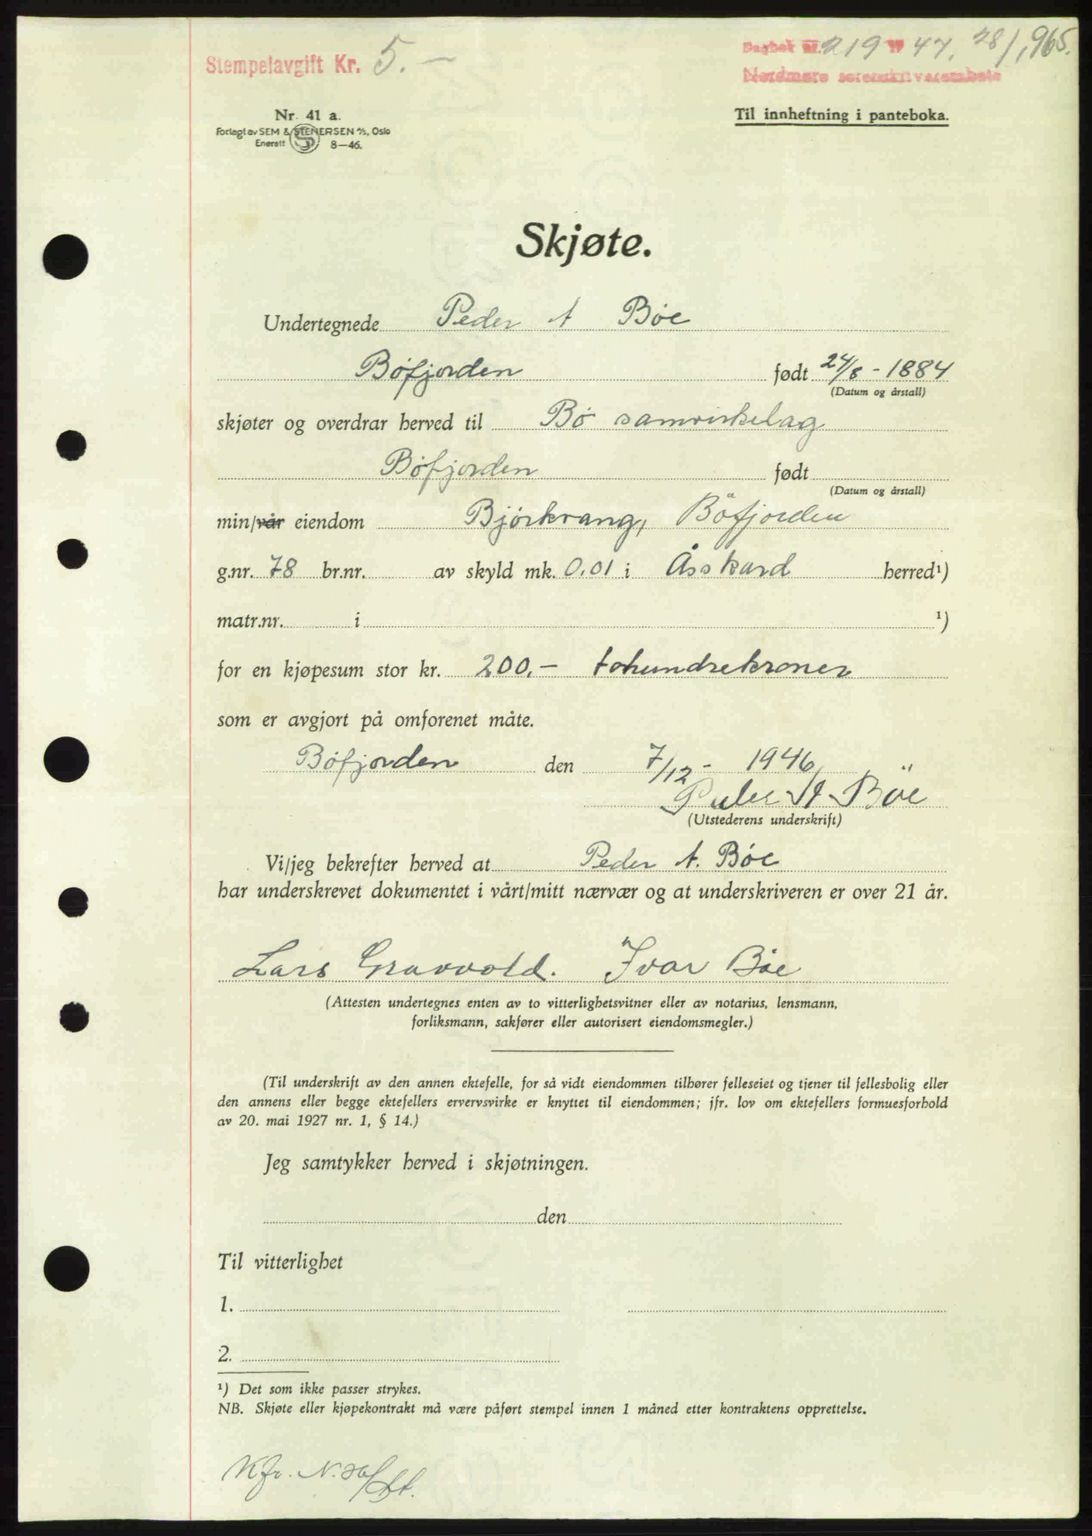 Stempelavgift Kr. 5.—
Dagbok nr. 219 19 47. 28/1, 965.
Nordmøre sorenskriverembete
Nr. 41 a.
Forlagt av SEM & STENERSEN A/S, Oslo
Enerett 8—46.
Til innheftning i panteboka.
Skjøte.
Undertegnede Peder A Bøe
Bøfjorden født 24/8 - 1884
(Datum og årstall)
skjøter og overdrar herved til Bø samvirkelag
Bøfjorden født
(Datum og årstall)
min/vår eiendom Bjørkvang, Bøfjorden
g.nr. 78 br.nr. av skyld mk. 0,01 i Åsskard herred¹)
matr.nr. i ¹)
for en kjøpesum stor kr. 200,— tohundrekroner
som er avgjort på omforenet måte.
Bøfjorden den 7/12 - 1946
Peder A Böe
(Utstederens underskrift)
Vi/jeg bekrefter herved at Peder A. Bøe
har underskrevet dokumentet i vårt/mitt nærvær og at underskriveren er over 21 år.
Lars Gravvold. Ivar Bøe
(Attesten undertegnes enten av to vitterlighetsvitner eller av notarius, lensmann,
forliksmann, sakfører eller autorisert eiendomsmegler.)
(Til underskrift av den annen ektefelle, for så vidt eiendommen tilhører felleseiet og tjener til fellesbolig eller
den annens eller begge ektefellers ervervsvirke er knyttet til eiendommen; jfr. lov om ektefellers formuesforhold
av 20. mai 1927 nr. 1, § 14.)
Jeg samtykker herved i skjøtningen.
den
Til vitterlighet
1.
2.
¹) Det som ikke passer strykes.
NB. Skjøte eller kjøpekontrakt må være påført stempel innen 1 måned etter kontraktens opprettelse.
Kfr. N.